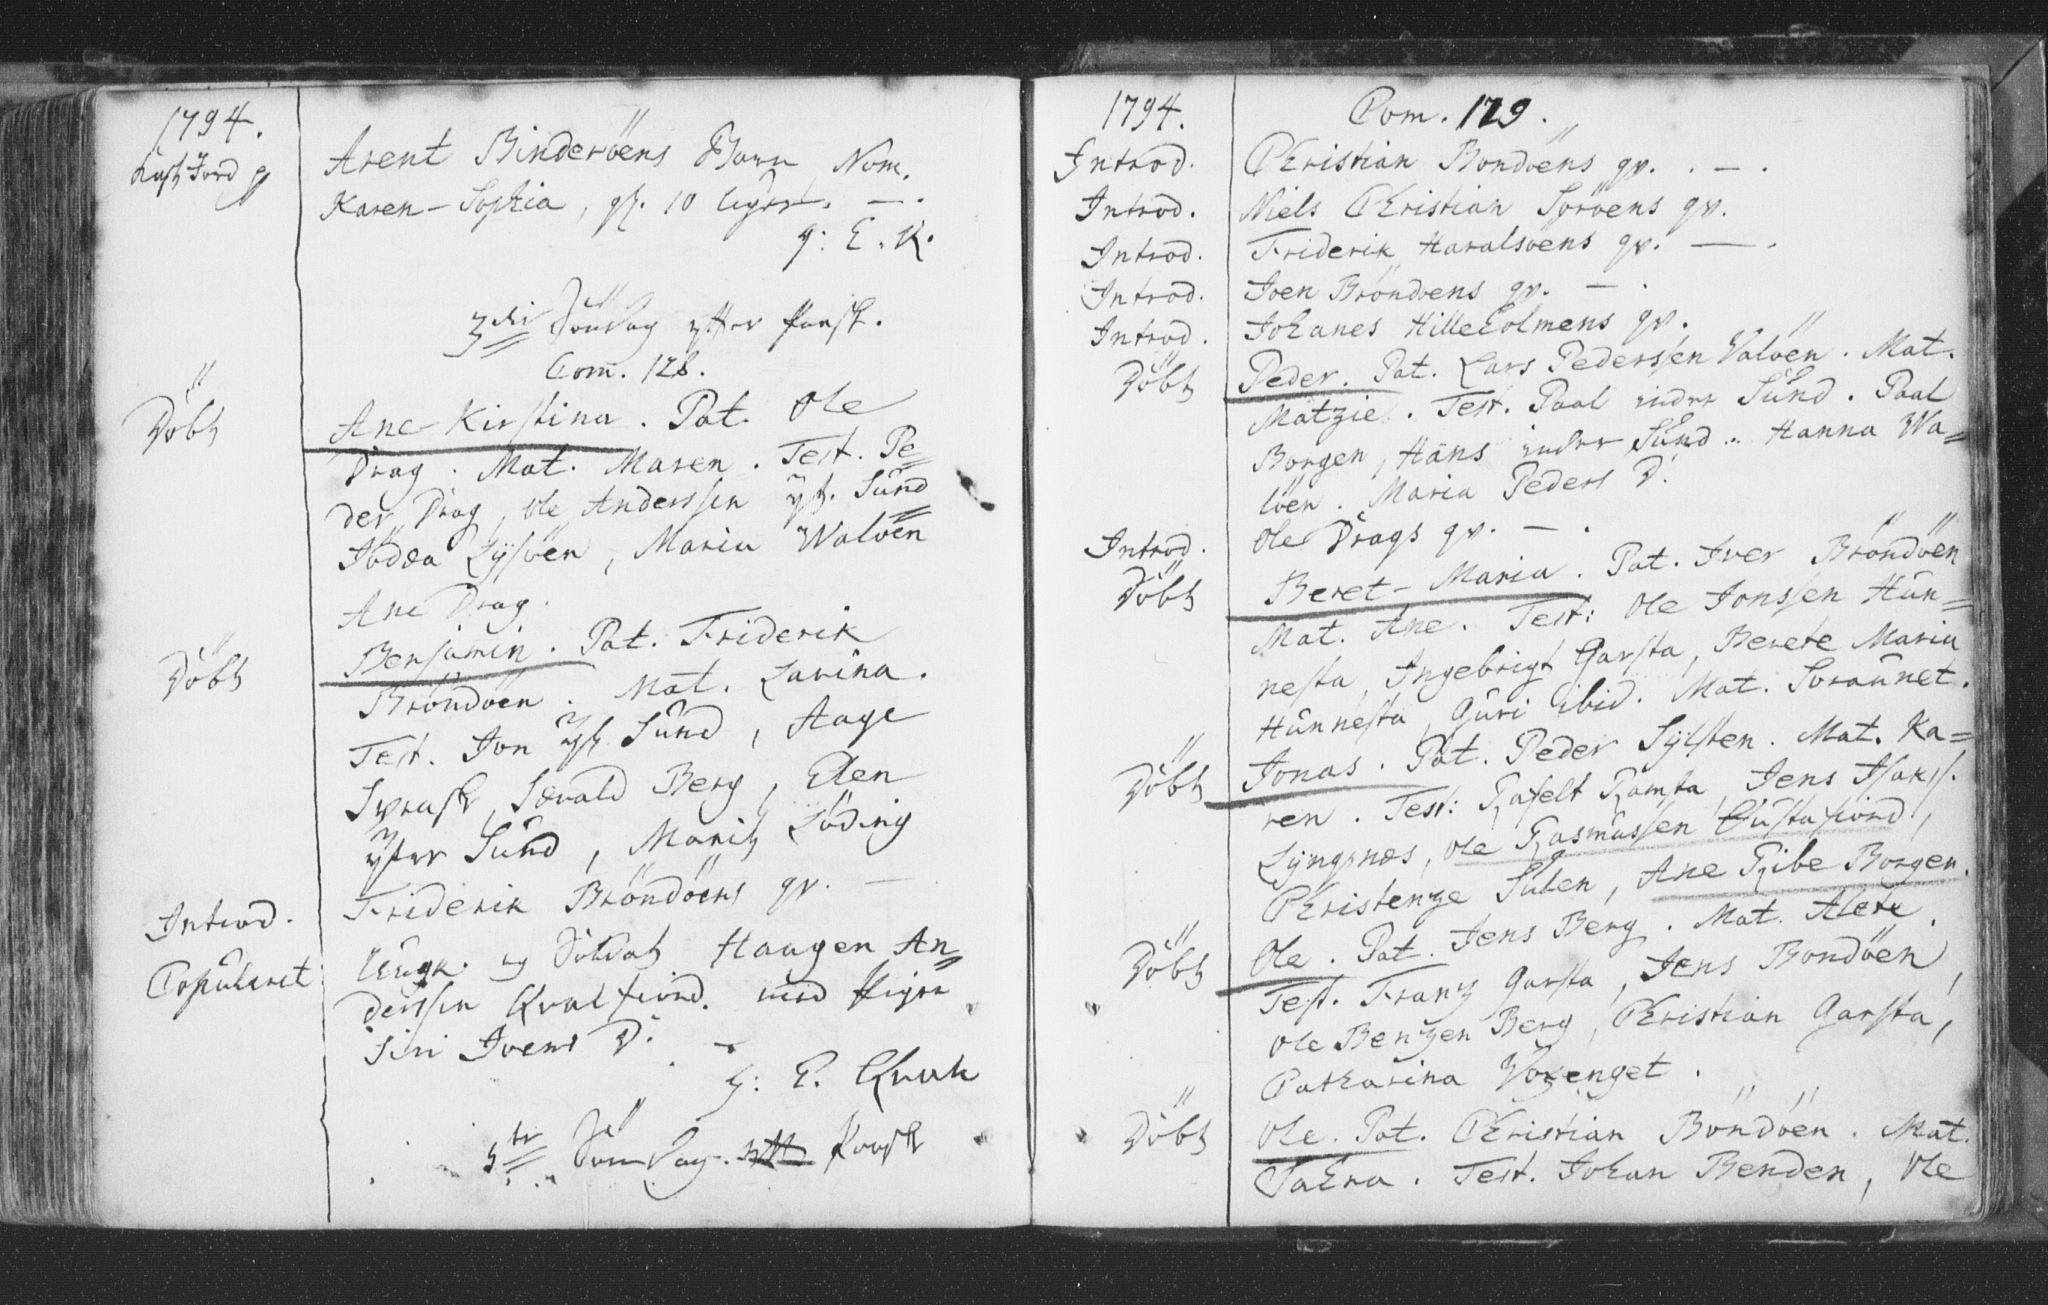 1794.
Kast Jord p
Arent Binderöens Barn Nom.
Karen-Sophia, gl. 10 Uger. —.
g: E. K.
3die Söndag efter Paask.
Com. 128.
Döbt
Ane-Kirstina. Pat. Ole
Drag. Mat. Maren. Test. Pe=
der Drag, Ole Anderssen yt. Sund
Lysöen, Maria Walöen
Ane Drag.
Döbt
Benjamin. Pat. Friderik
Bröndöen. Mat. Lavina.
Test. Jon yt. Sund, Aage
Særald Berg, Elen
yter Sund, Marit Löding
Introd.
Friderik Bröndöens qv. —
Copuleret
Ungk. og Soldat Haagen An=
derssen Qvalfiord. med Pigen
Siri Ivers D.
g: E. Kvale
5te Söndag. Paask
1794.
Com. 129.
Introd. Christian Bondöens qv. . — .
Introd. Niels Christian Söröens qv.
Introd. Friderik Haralsöens qv. — .
Introd. Joen Bröndöens qv. — .
Introd. Johanes Hilleholmens qv.
Döbt Peder. Pat. Lars Pederssen Valöen. Mat.
Matzie. Test. Paal inder Sund. Paal
Borgen, Hans inder Sund.. Hanna Wa=
löen. Maria Peders D.
Introd. Ole Drags qv. — .
Döbt Beret-Maria. Pat. Iver Bröndöen
Mat. Ane. Test: Ole Jonssen Hun=
nesta, Ingebrigt Garsta, Berete Maria
Hunnesta, Guri ibid. Mat. Soraunet.
Döbt Jonas. Pat. Peder Sylsten. Mat. Ka=
ren. Test: Rafelt Ramsta, Jens Isakss.
Lyngsnæs, Ole Rasmussen Gustafiord,
Christenze Sulen, Ane Ribe Borgen.
Döbt Ole. Pat. Jens Berg. Mat. Alete.
Test. Franz Garsta, Jens Bondöen,
Ole Benzen Berg, Christian Garsta,
Catharina Voxenget.
Döbt Ole. Pat. Christian Böndöen. Mat.
Tahra. Test. Johan Benden, Ole